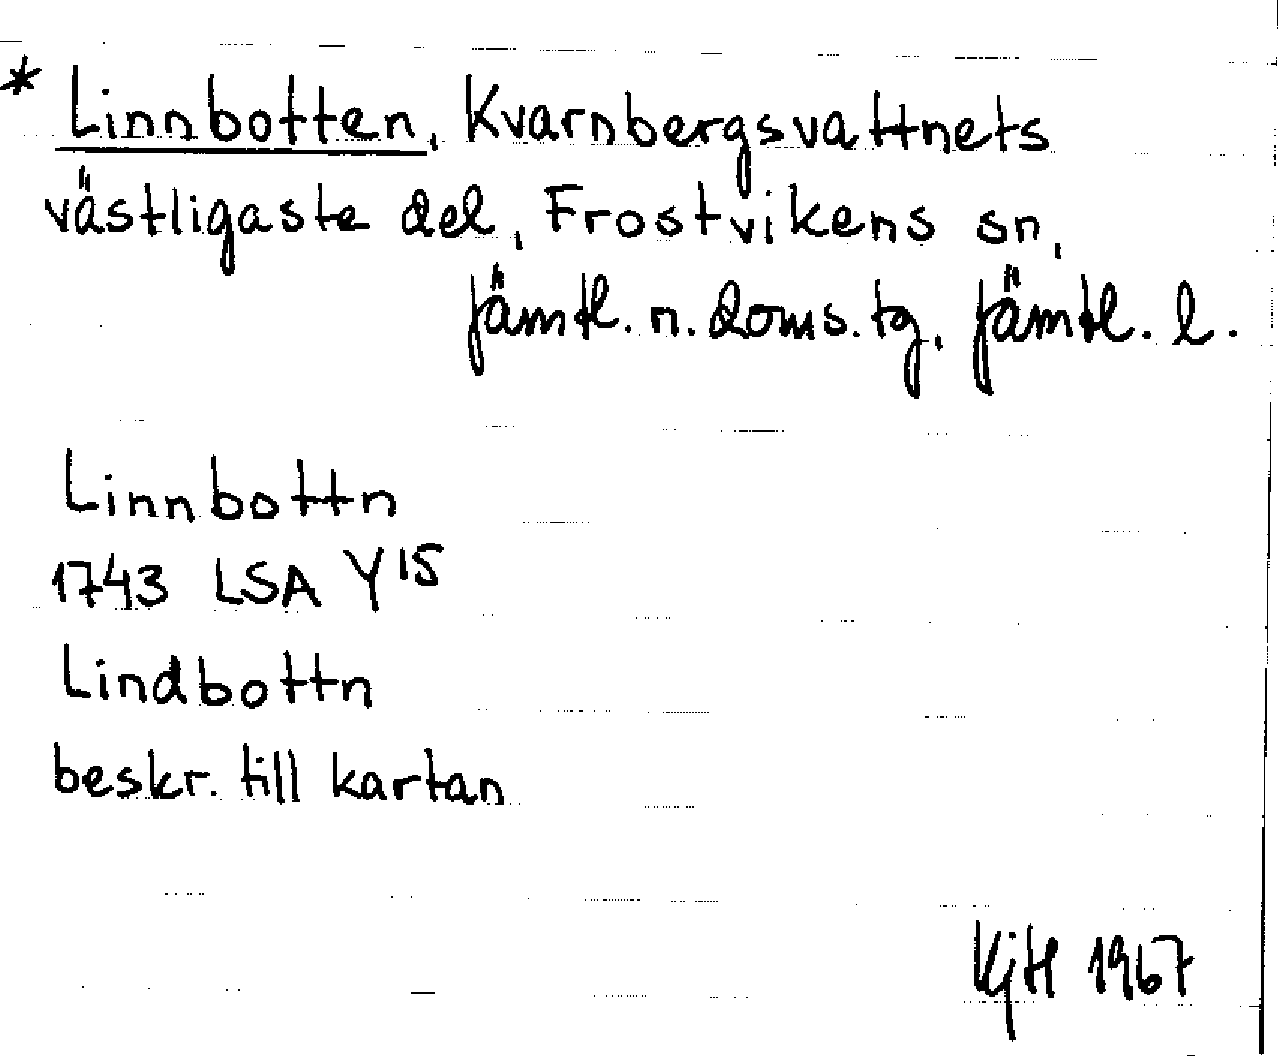 * Linnbotten, Kvarnbergsvattnets
västligaste del, Frostvikens sn,
Jämtl. n. doms. tg, Jämtl. l.
Linnbottn
1743 LSA Y15
Lindbottn
beskr. till kartan
KjH 1967